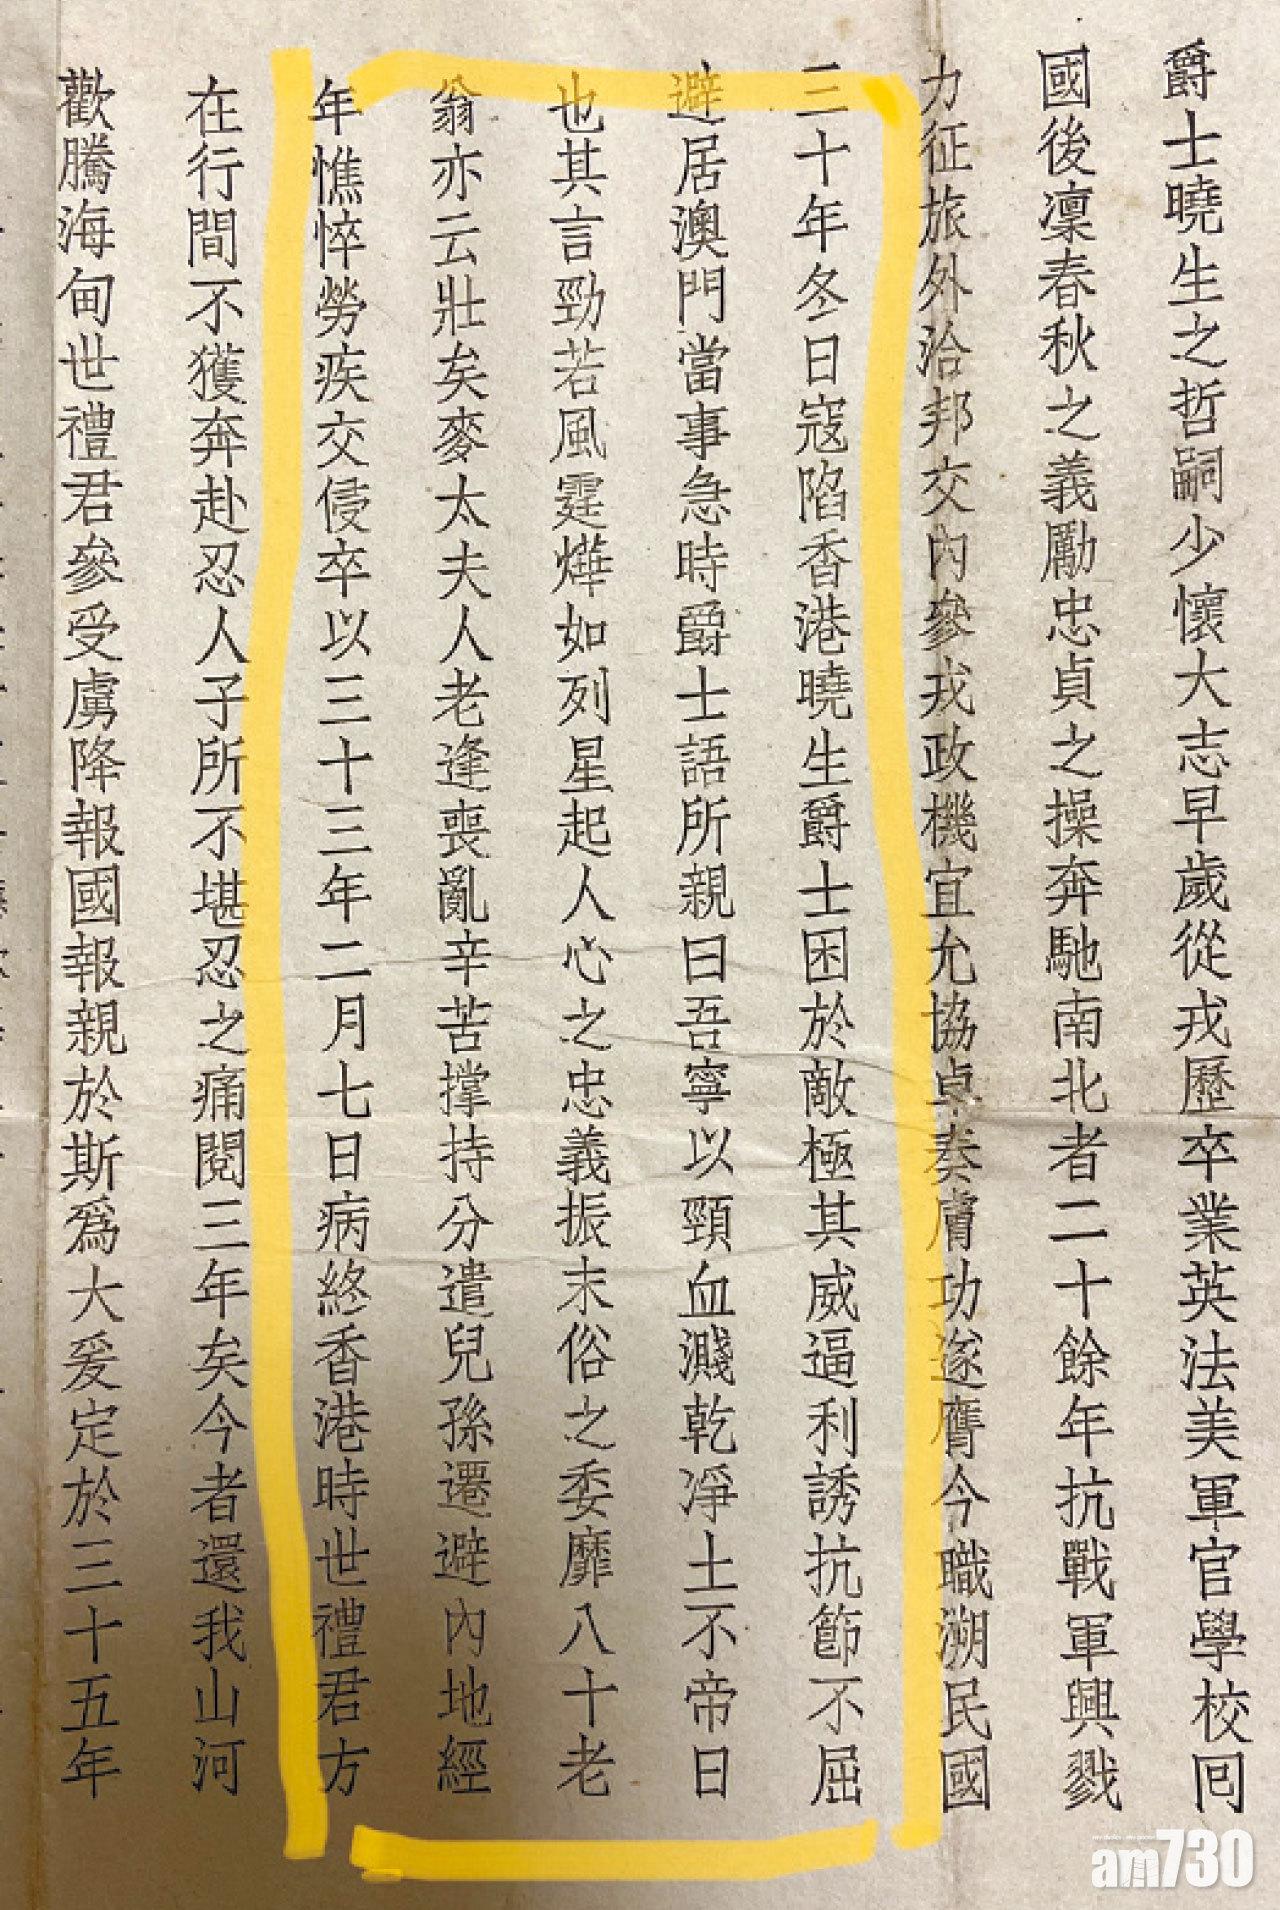 爵士曉生之哲嗣少懷大志早歲從戎歷卒業英法美軍官學校囘
國後凜春秋之義勵忠貞之操奔馳南北者二十餘年抗戰軍興戮
力征旅外洽邦交內參戎政機宜允協卓奏膚功遂膺今職溯民國
三十年冬日寇陷香港曉生爵士困於敵極其威逼利誘抗節不屈
避居澳門當事急時爵士語所親曰吾寧以頸血濺乾淨土不帝日
也其言勁若風霆燁如列星起人心之忠義振末俗之委靡八十老
翁亦云壯矣麥太夫人老逢喪亂辛苦撑持分遣兒孫遷避內地經
年憔悴勞疾交侵卒以三十三年二月七日病終香港時世禮君方
在行間不獲奔赴忍人子所不堪忍之痛閱三年矣今者還我山河
歡騰海甸世禮君參受虜降報國報親於斯爲大爰定於三十五年
am730